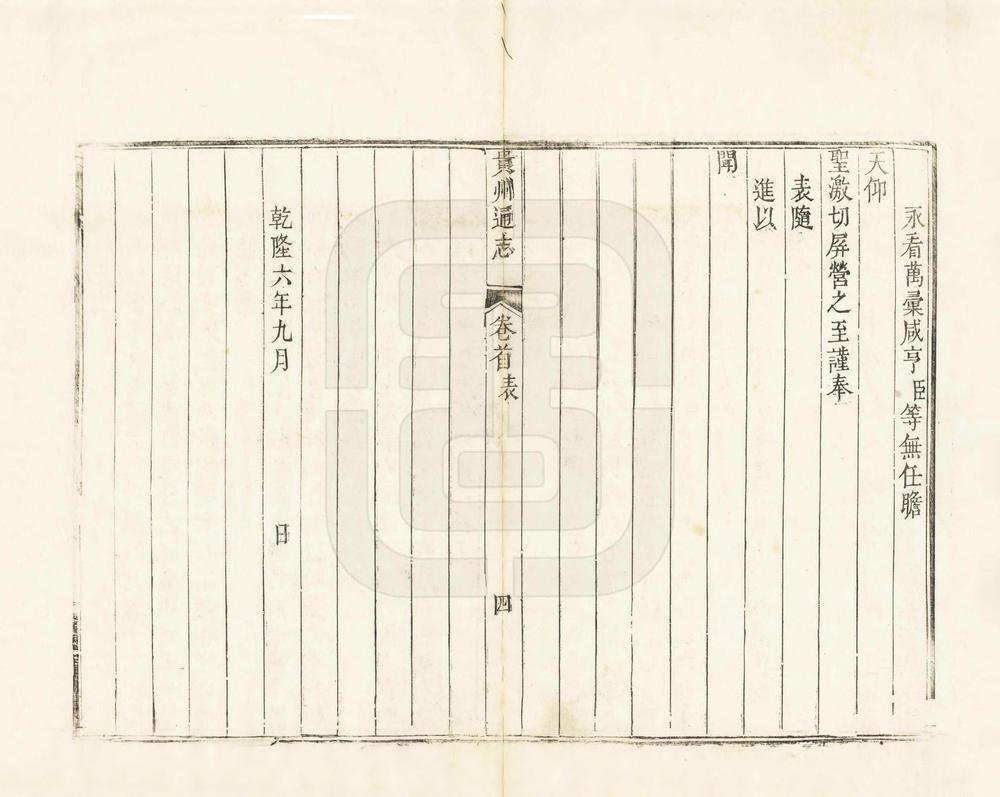 永看萬彙咸亨臣等無任瞻
天仰
聖激切屏營之至謹奉
表隨
進以
聞
貴州通志
卷首
表
四
乾隆六年九月　日